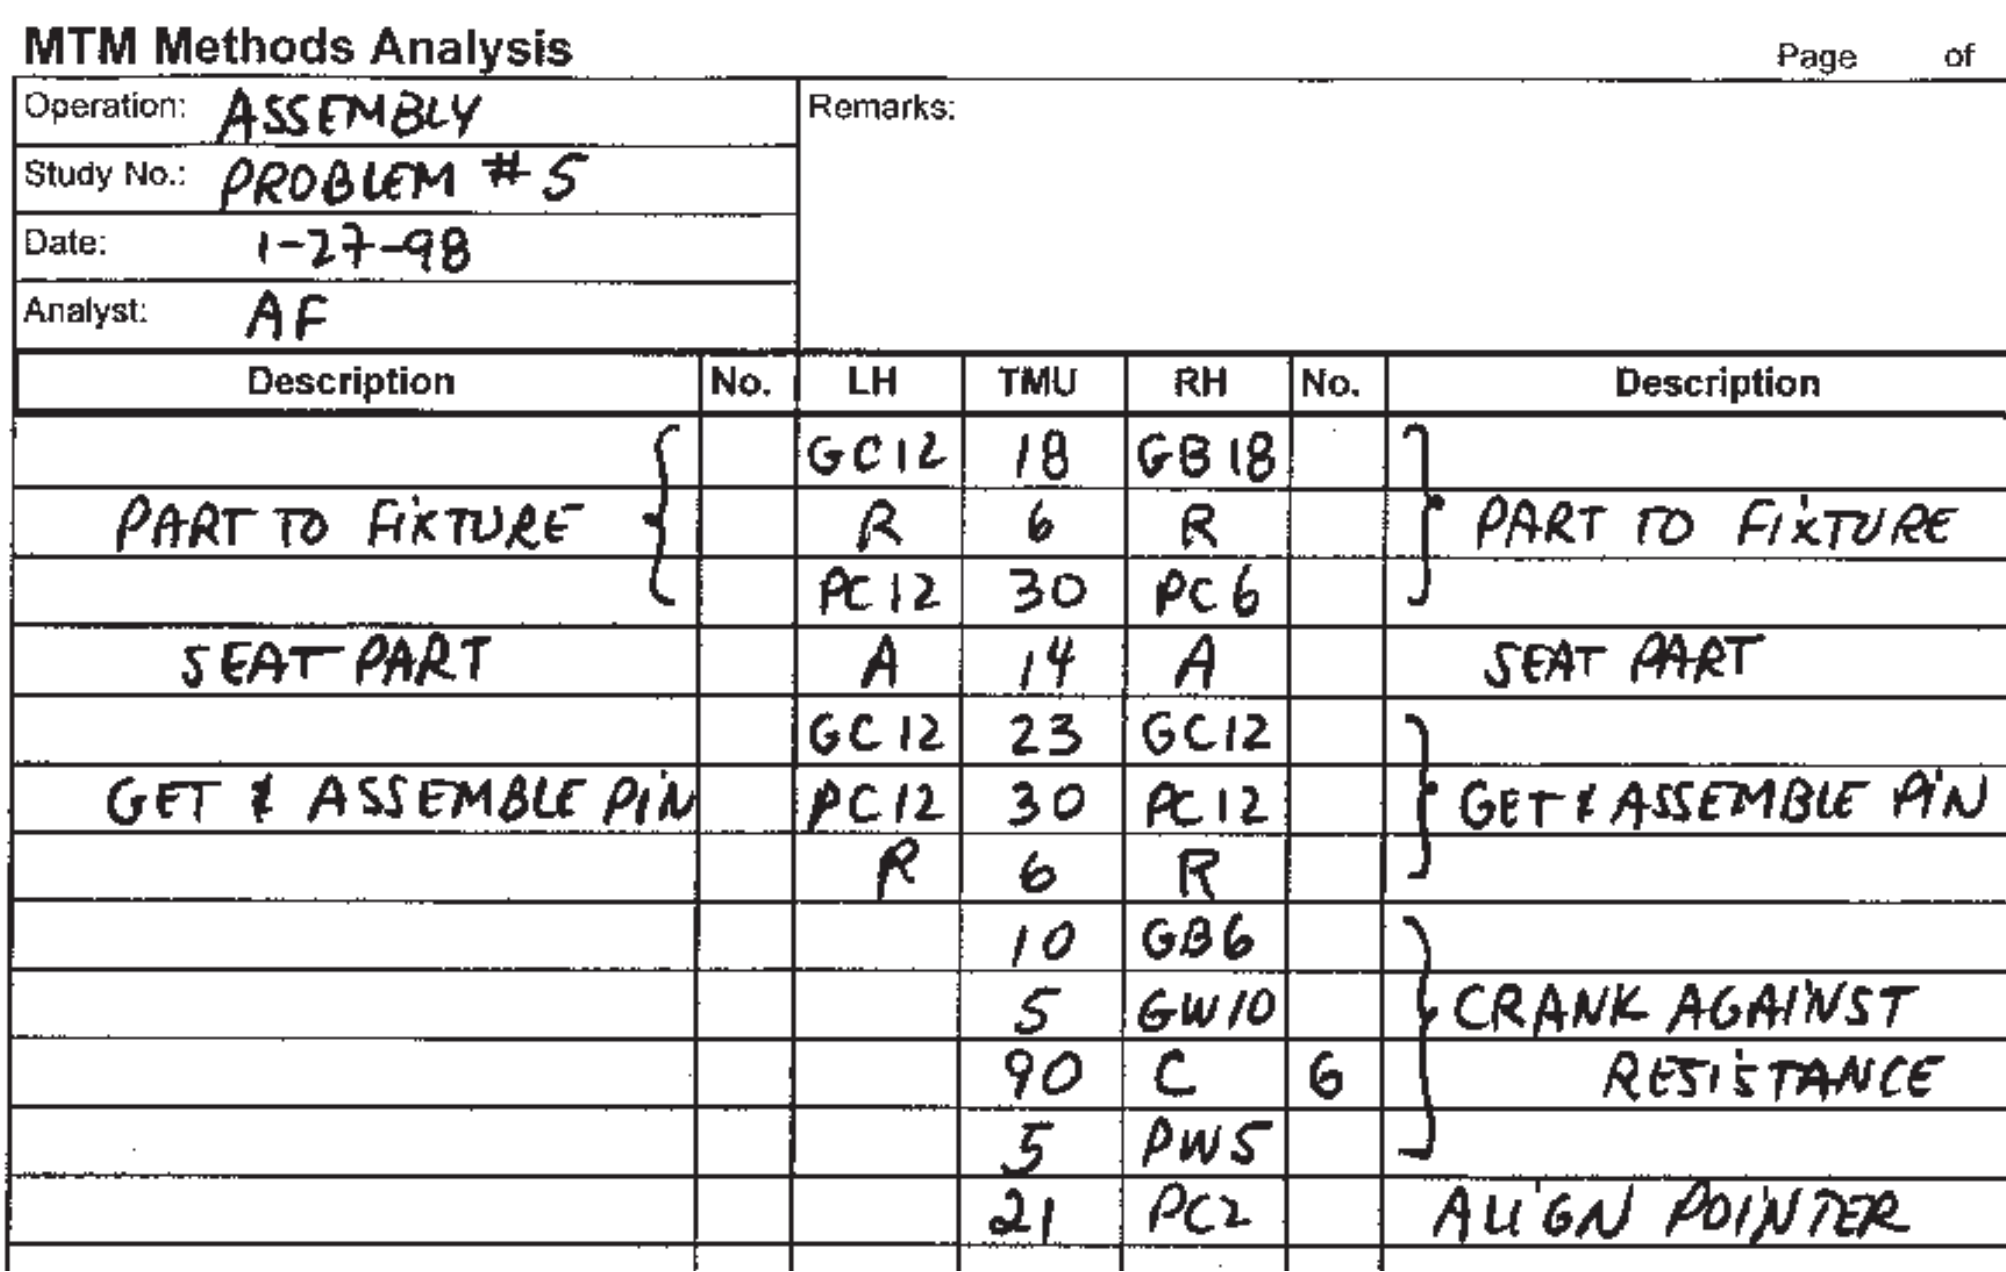 MTM Methods Analysis Page of
Operation: ASSEMBLY Remarks:
Study No.: PROBLEM #5
Date: 1-27-98
Analyst: AF
Description No. LH TMU RH No. Description
GC12 18 GB18
PART TO FIXTURE R 6 R PART TO FIXTURE
PC12 30 PC6
SEAT PART A 14 A SEAT PART
GC12 23 GC12
GET & ASSEMBLE PIN PC12 30 PC12 GET & ASSEMBLE PIN
R 6 R
10 GB6
5 GW10 CRANK AGAINST
90 C 6 RESISTANCE
5 PW5
21 PC2 ALIGN POINTER